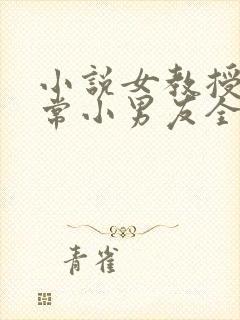 小說女教授
常小男友全
青雀